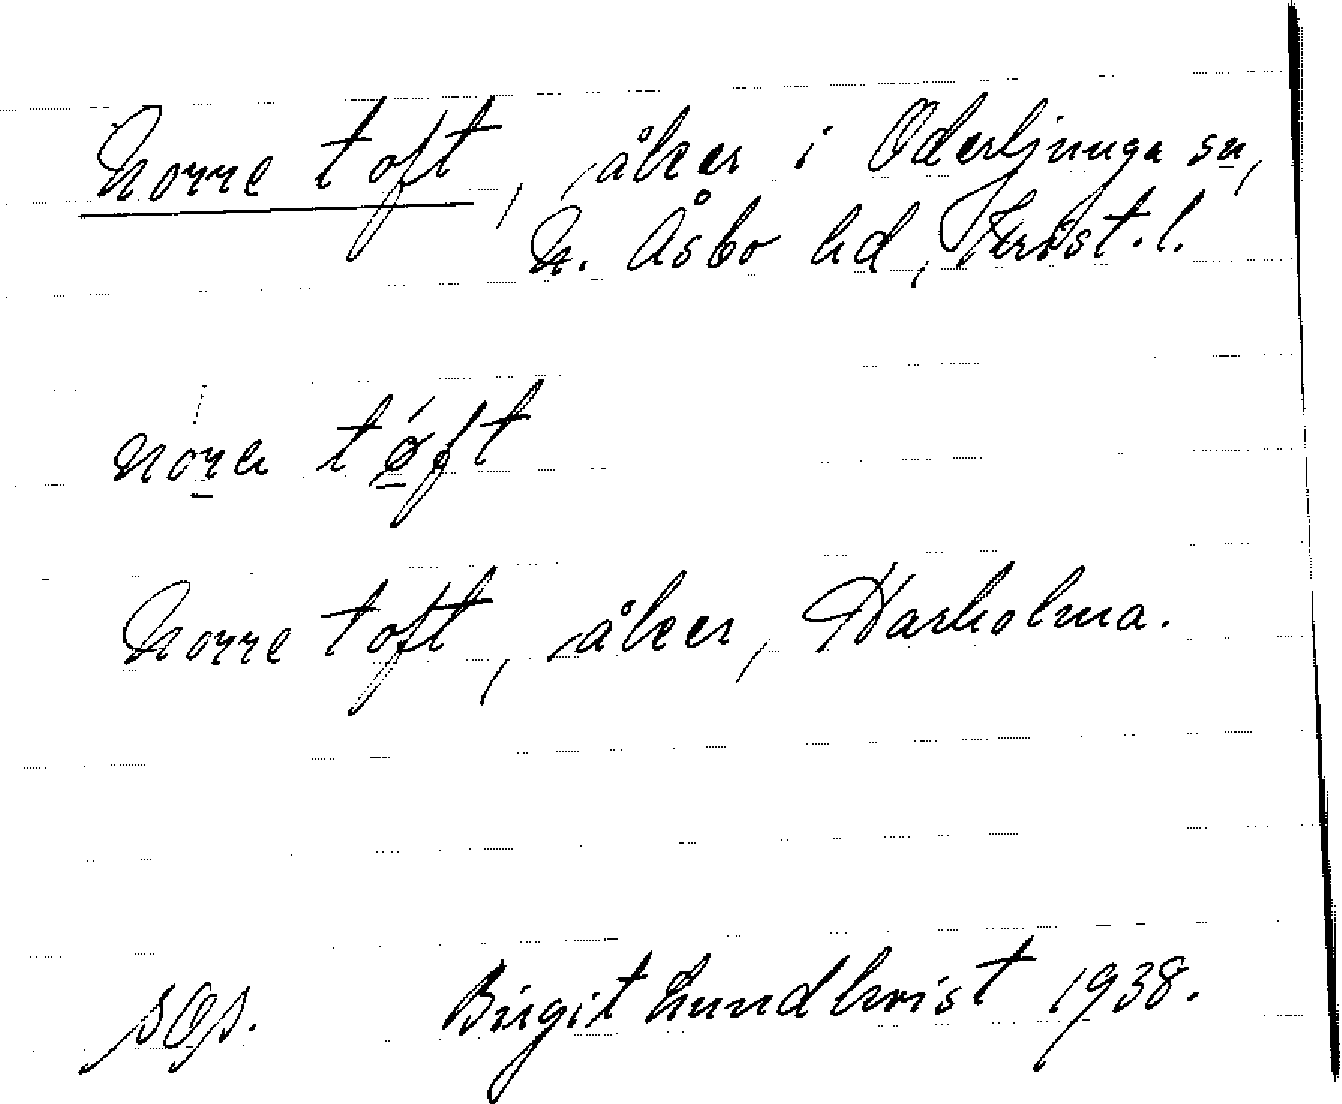 Norre toft, åker i Oderljunga sn,
N. Åsbo hd, Krist. l.
nora tǿft
Norre toft, åker, Harholma.
sgs. Birgit Lundkvist 1938.